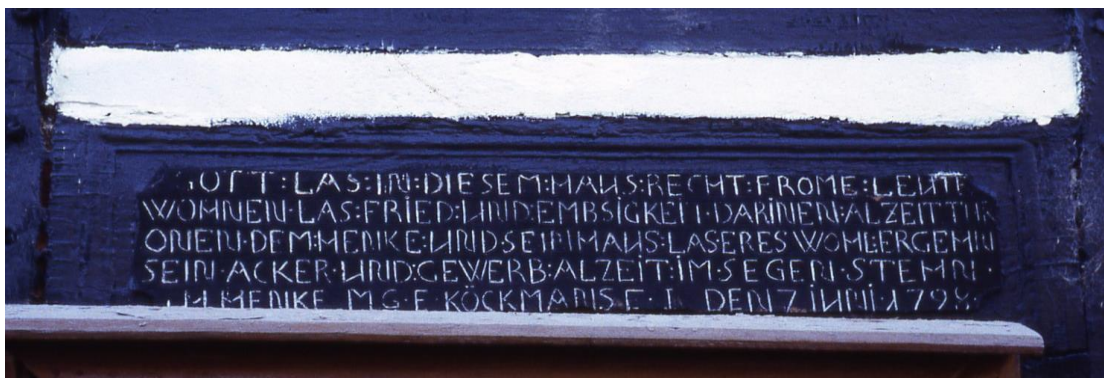 GOTT:LAS:IN:DIESEM:HAUS:RECHT:FROME:LEUTE
WOHNEN·LAS:FRIED:UND:EMBSIGKEIT·DARINEN·ALZEIT THR
ONEN·DEM:HENKE:UND·SEIN HAUS·LAS ER ES WOHL:ERGEHN
SEIN·ACKER·UND:GEWERB:ALZEIT:IM·SEGEN·STEHN·
HENKE M.G.E KÖCKMANS E· DEN 7 IUNI·179